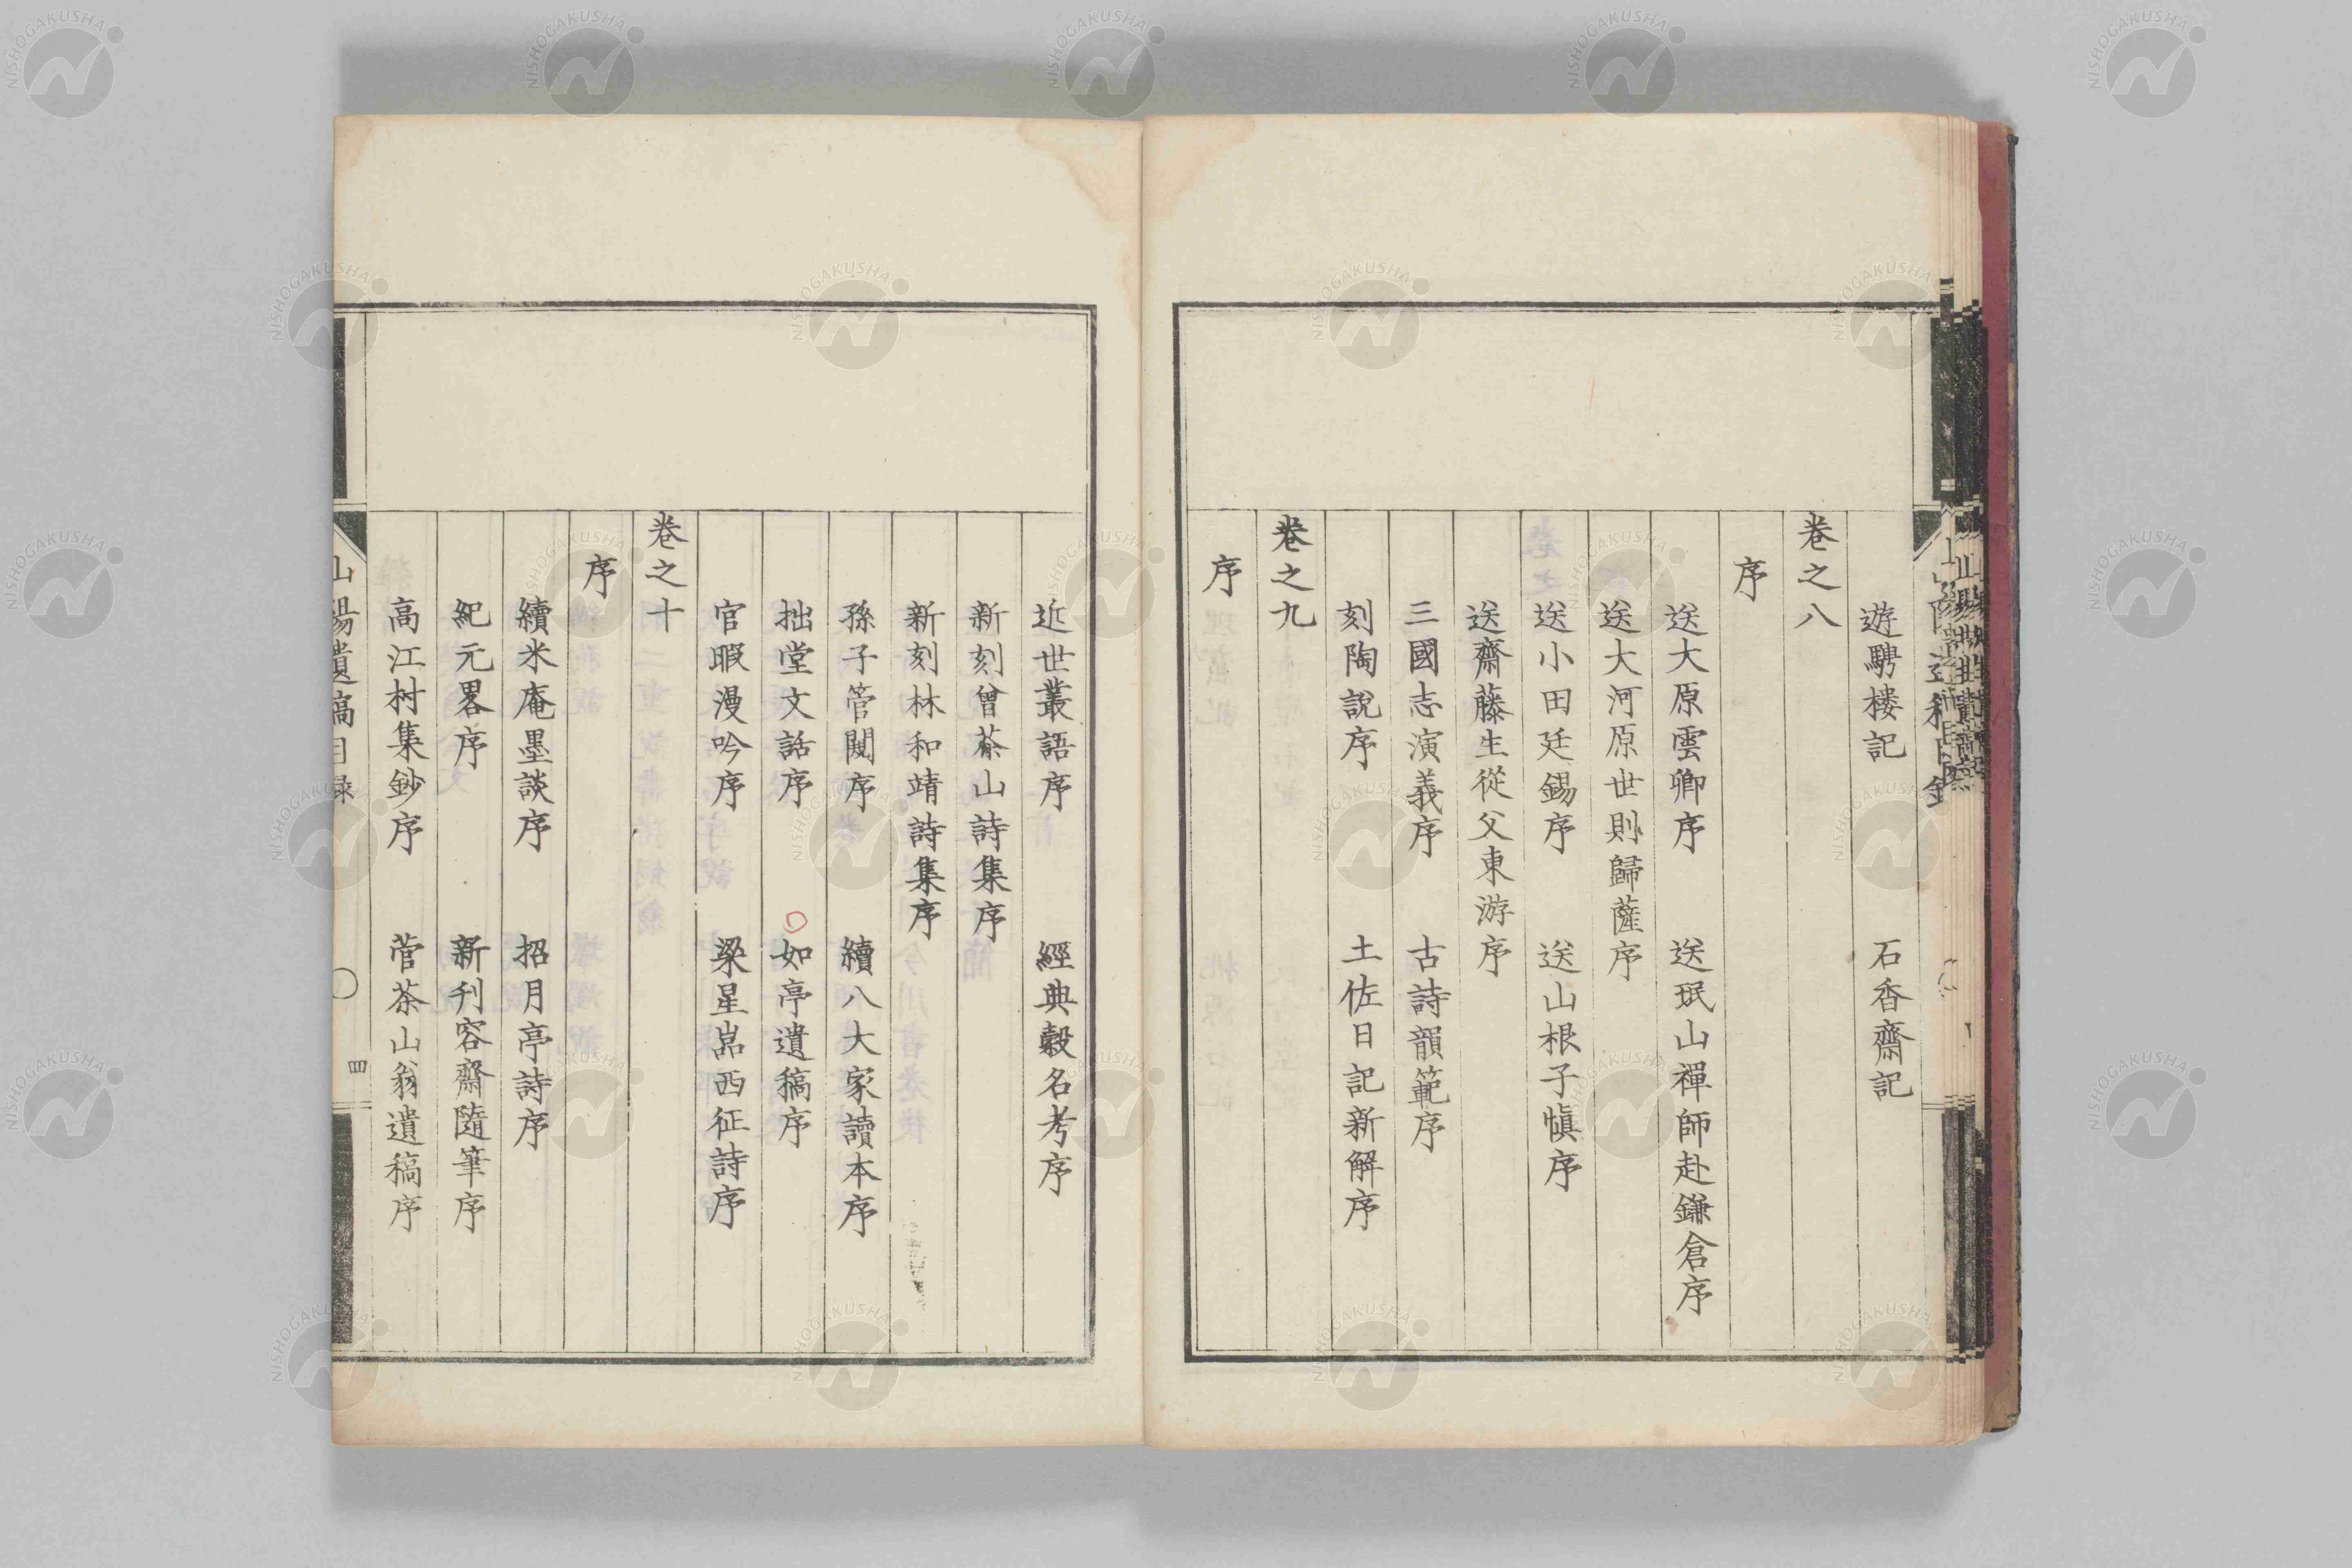 遊騁楼記 石香齋記
卷之八
序
送大原雲卿序 送珉山禪師赴鎌倉序
送大河原世則歸薩序
送小田廷錫序 送山根子愼序
送齋藤生從父東游序
三國志演義序 古詩韻範序
刻陶說序 土佐日記新解序
卷之九
序
近世叢語序 經典穀名考序
新刻曾茶山詩集序
新刻林和靖詩集序
孫子管闚序 續八大家讀本序
拙堂文話序 如亭遺稿序
官暇漫吟序 梁星巖西征詩序
卷之十
序
續米庵墨談序 招月亭詩序
紀元畧序 新刊容齋隨筆序
高江村集鈔序 菅茶山翁遺稿序
山陽遺稿目録 四
NISHOGAKUSHA